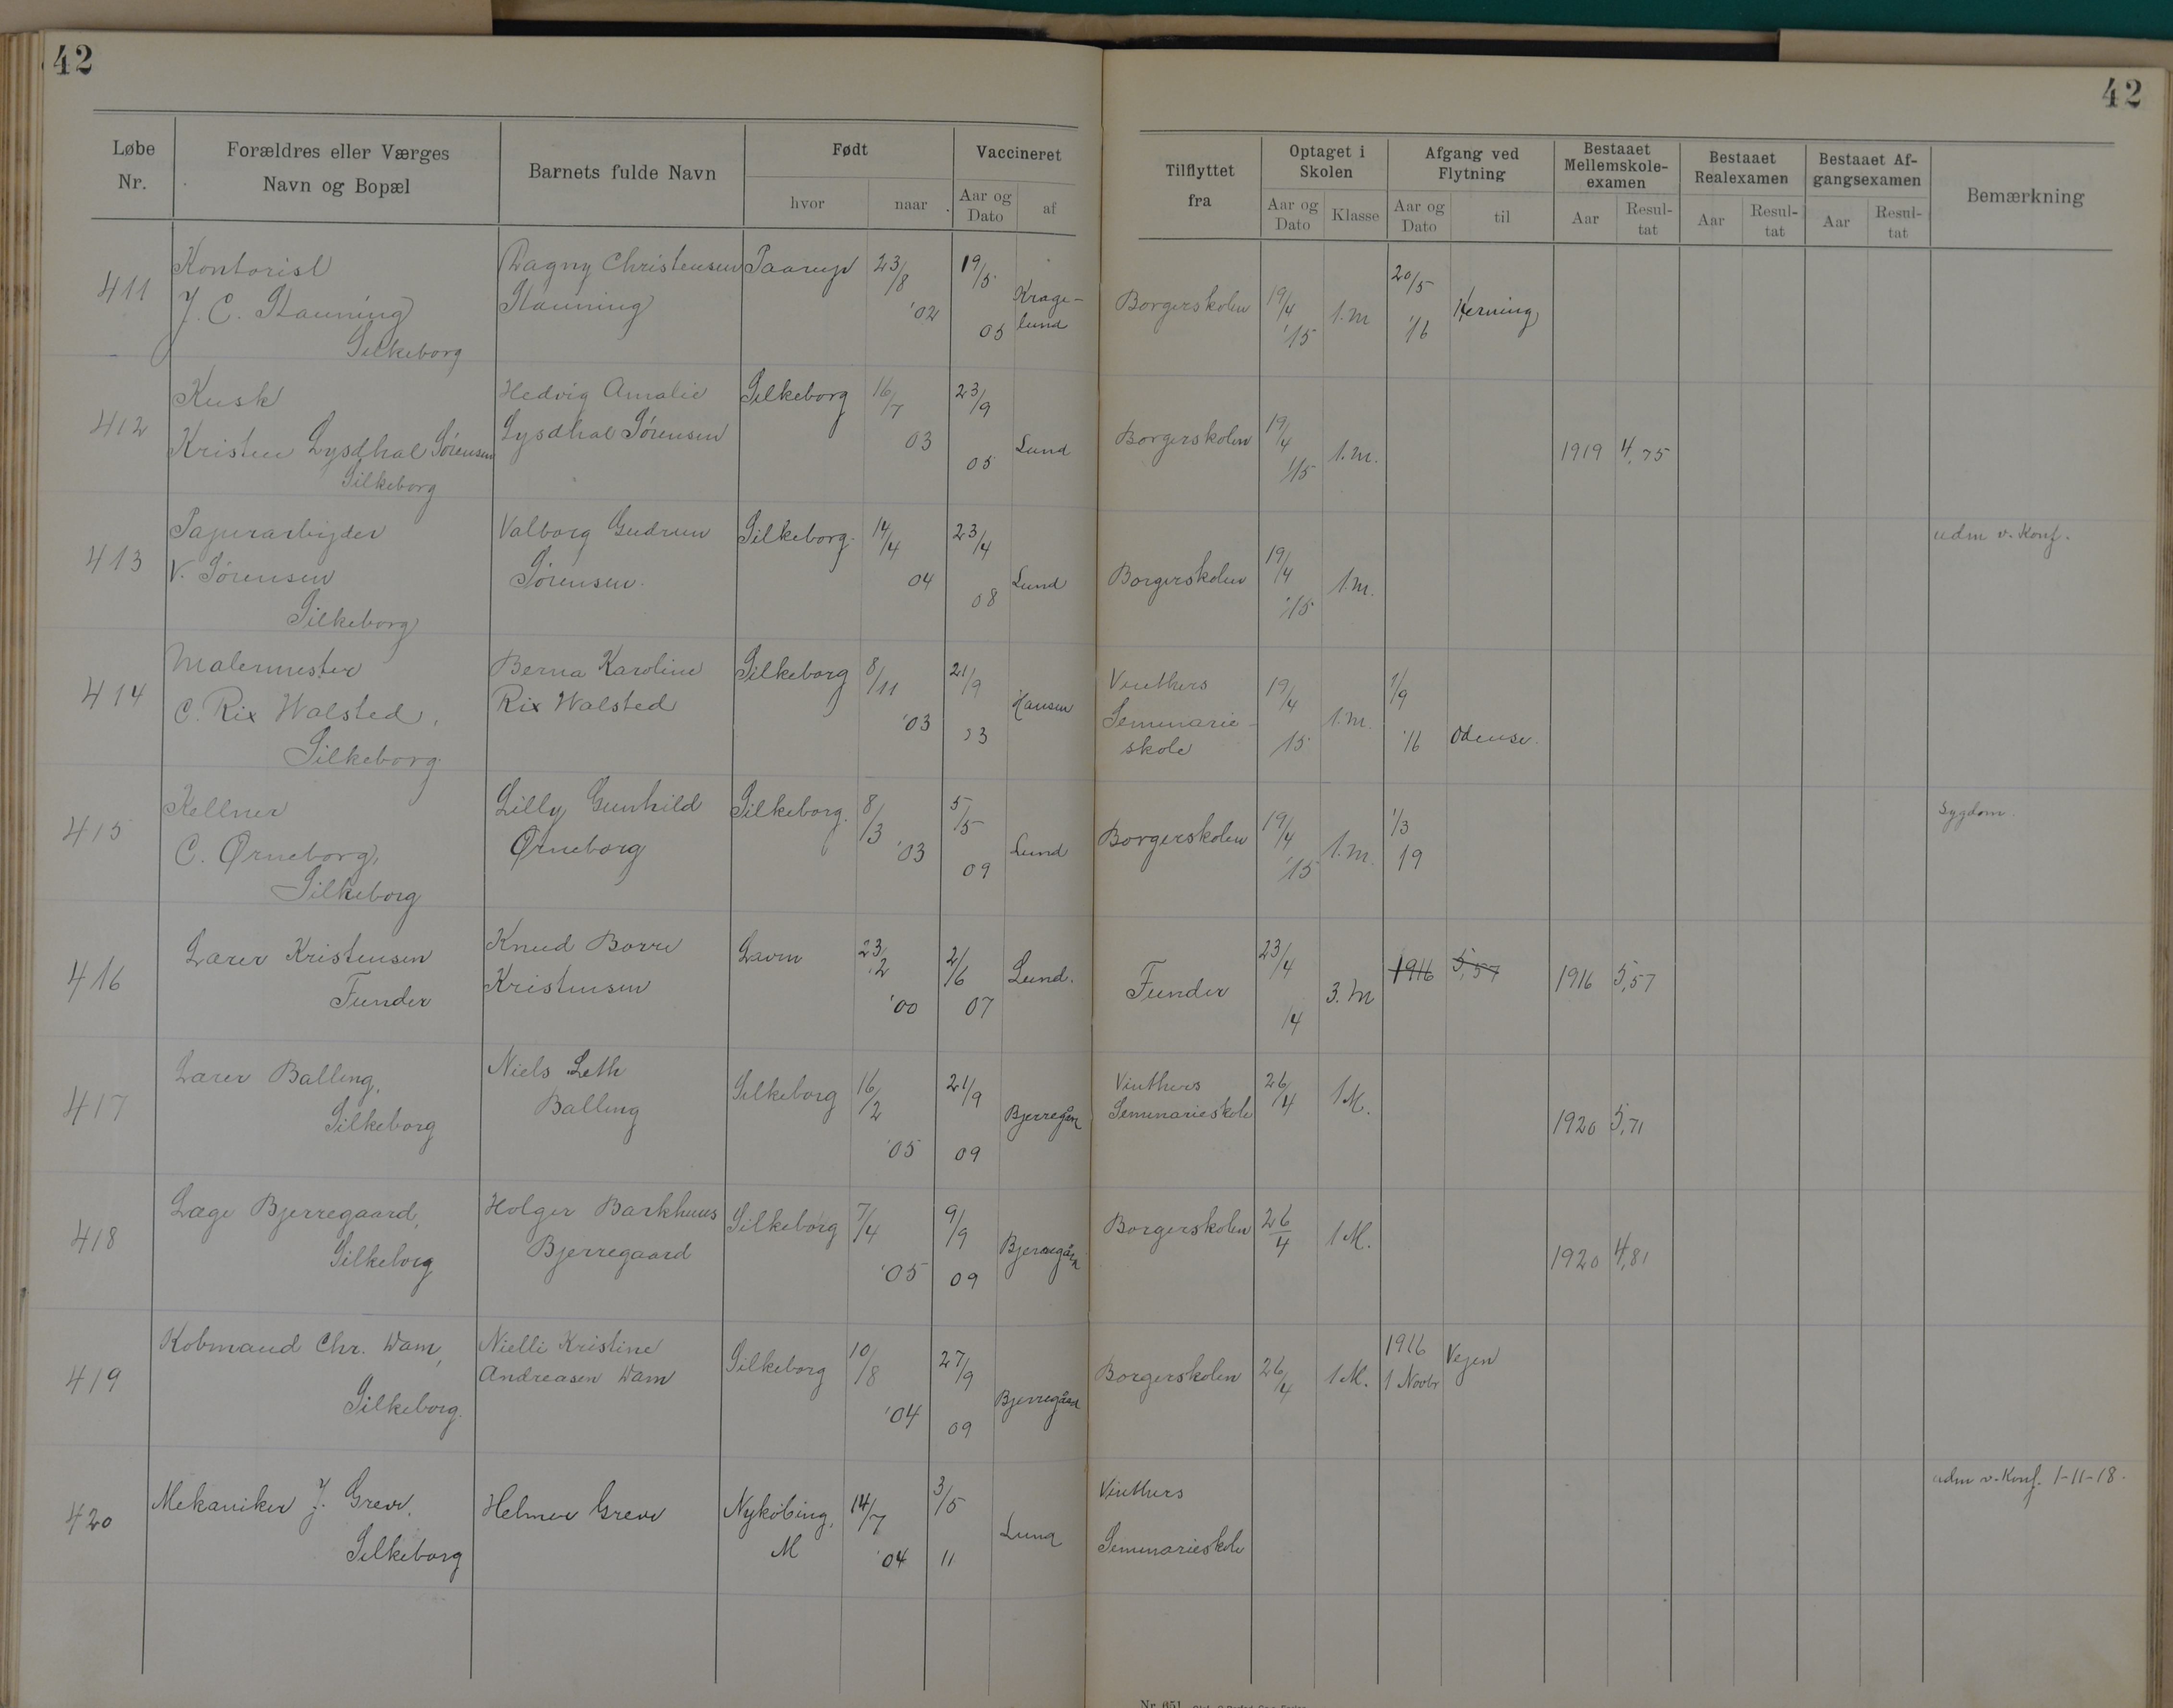 42
42
Løbe Nr.
Forældres eller Værges Navn og Bopæl
Barnets fulde Navn
Født
hvor
naar
Vaccineret
Aar og Dato
af
Tilflyttet fra
Optaget i Skolen
Aar og Dato
Klasse
Afgang ved Flytning
Aar og Dato
til
Bestaaet Mellemskole-examen
Aar
Resul-tat
Bestaaet Realexamen
Aar
Resul-tat
Bestaaet Af-gangsexamen
Aar
Resul-tat
Bemærkning
411 Kontorist Dagny Christensen Paarup 23/8 19/5 Krage- Borgerskolen 19/4 1.M 20/5 Herning
J. C. Stauning Stauning '02 05 lund '15 '16
Silkeborg
412 Kusk Hedvig Amalie Silkeborg 16/7 23/9 Lund Borgerskolen 19/4 1.M. 1919 4,75
Kristen Lysdhal Sørensen Lysdhal Sørensen 03 05 '15
Silkeborg
413 Papirarbejder Valborg Gudrun Silkeborg 14/4 23/4 Lund Borgerskolen 19/4 1.M. udm v. Konf.
V. Sørensen Sørensen. 04 08 '15
Silkeborg
414 Malermester Berna Karoline Silkeborg 8/11 21/9 Hansen Vinthers 19/4 1.M. 1/9 Odense.
C. Rix Walsted, Rix Walsted '03 Seminarie- 15 '16
Silkeborg skole
415 Kellner Lilly Gunhild Silkeborg. 8/3 5/5 Lund Borgerskolen 19/4 1.M. 1/3 Sygdom.
C. Ørneborg, Ørneborg '03 09 '15 19
Silkeborg
416 Lærer Kristensen Knud Borre Laven 23/2 2/6 Lund. Funder 23/4 3.M 1916 5,57 1916 5,57
Funder Kristensen '00 07 14
417 Lærer Balling, Niels Leth Silkeborg 16/2 21/9 Bjerregån Vinthers 26/4 1M. 1920 5,71
Silkeborg Balling '05 09 Seminarieskole
418 Læge Bjerregaard, Holger Barkhuus Silkeborg 7/4 9/9 Borgerskolen 26/4 1M. 1920 4,81
Silkeborg Bjerregaard '05 09
419 Købmand Chr. Dam, Nielli Kristine Silkeborg 10/8 27/9 Bjerregård Borgerskolen 26/4 1M. 1916 Vejen
Silkeborg. Andreasen Dam '04 09 1 Novbr
420 Mekaniker J. Greve, Helmer Greve Nykøbing, 14/7 3/5 Lund Vinthers udm v. Konf. 1-11-18.
Silkeborg M '04 11 Seminarieskole
Nr. 651